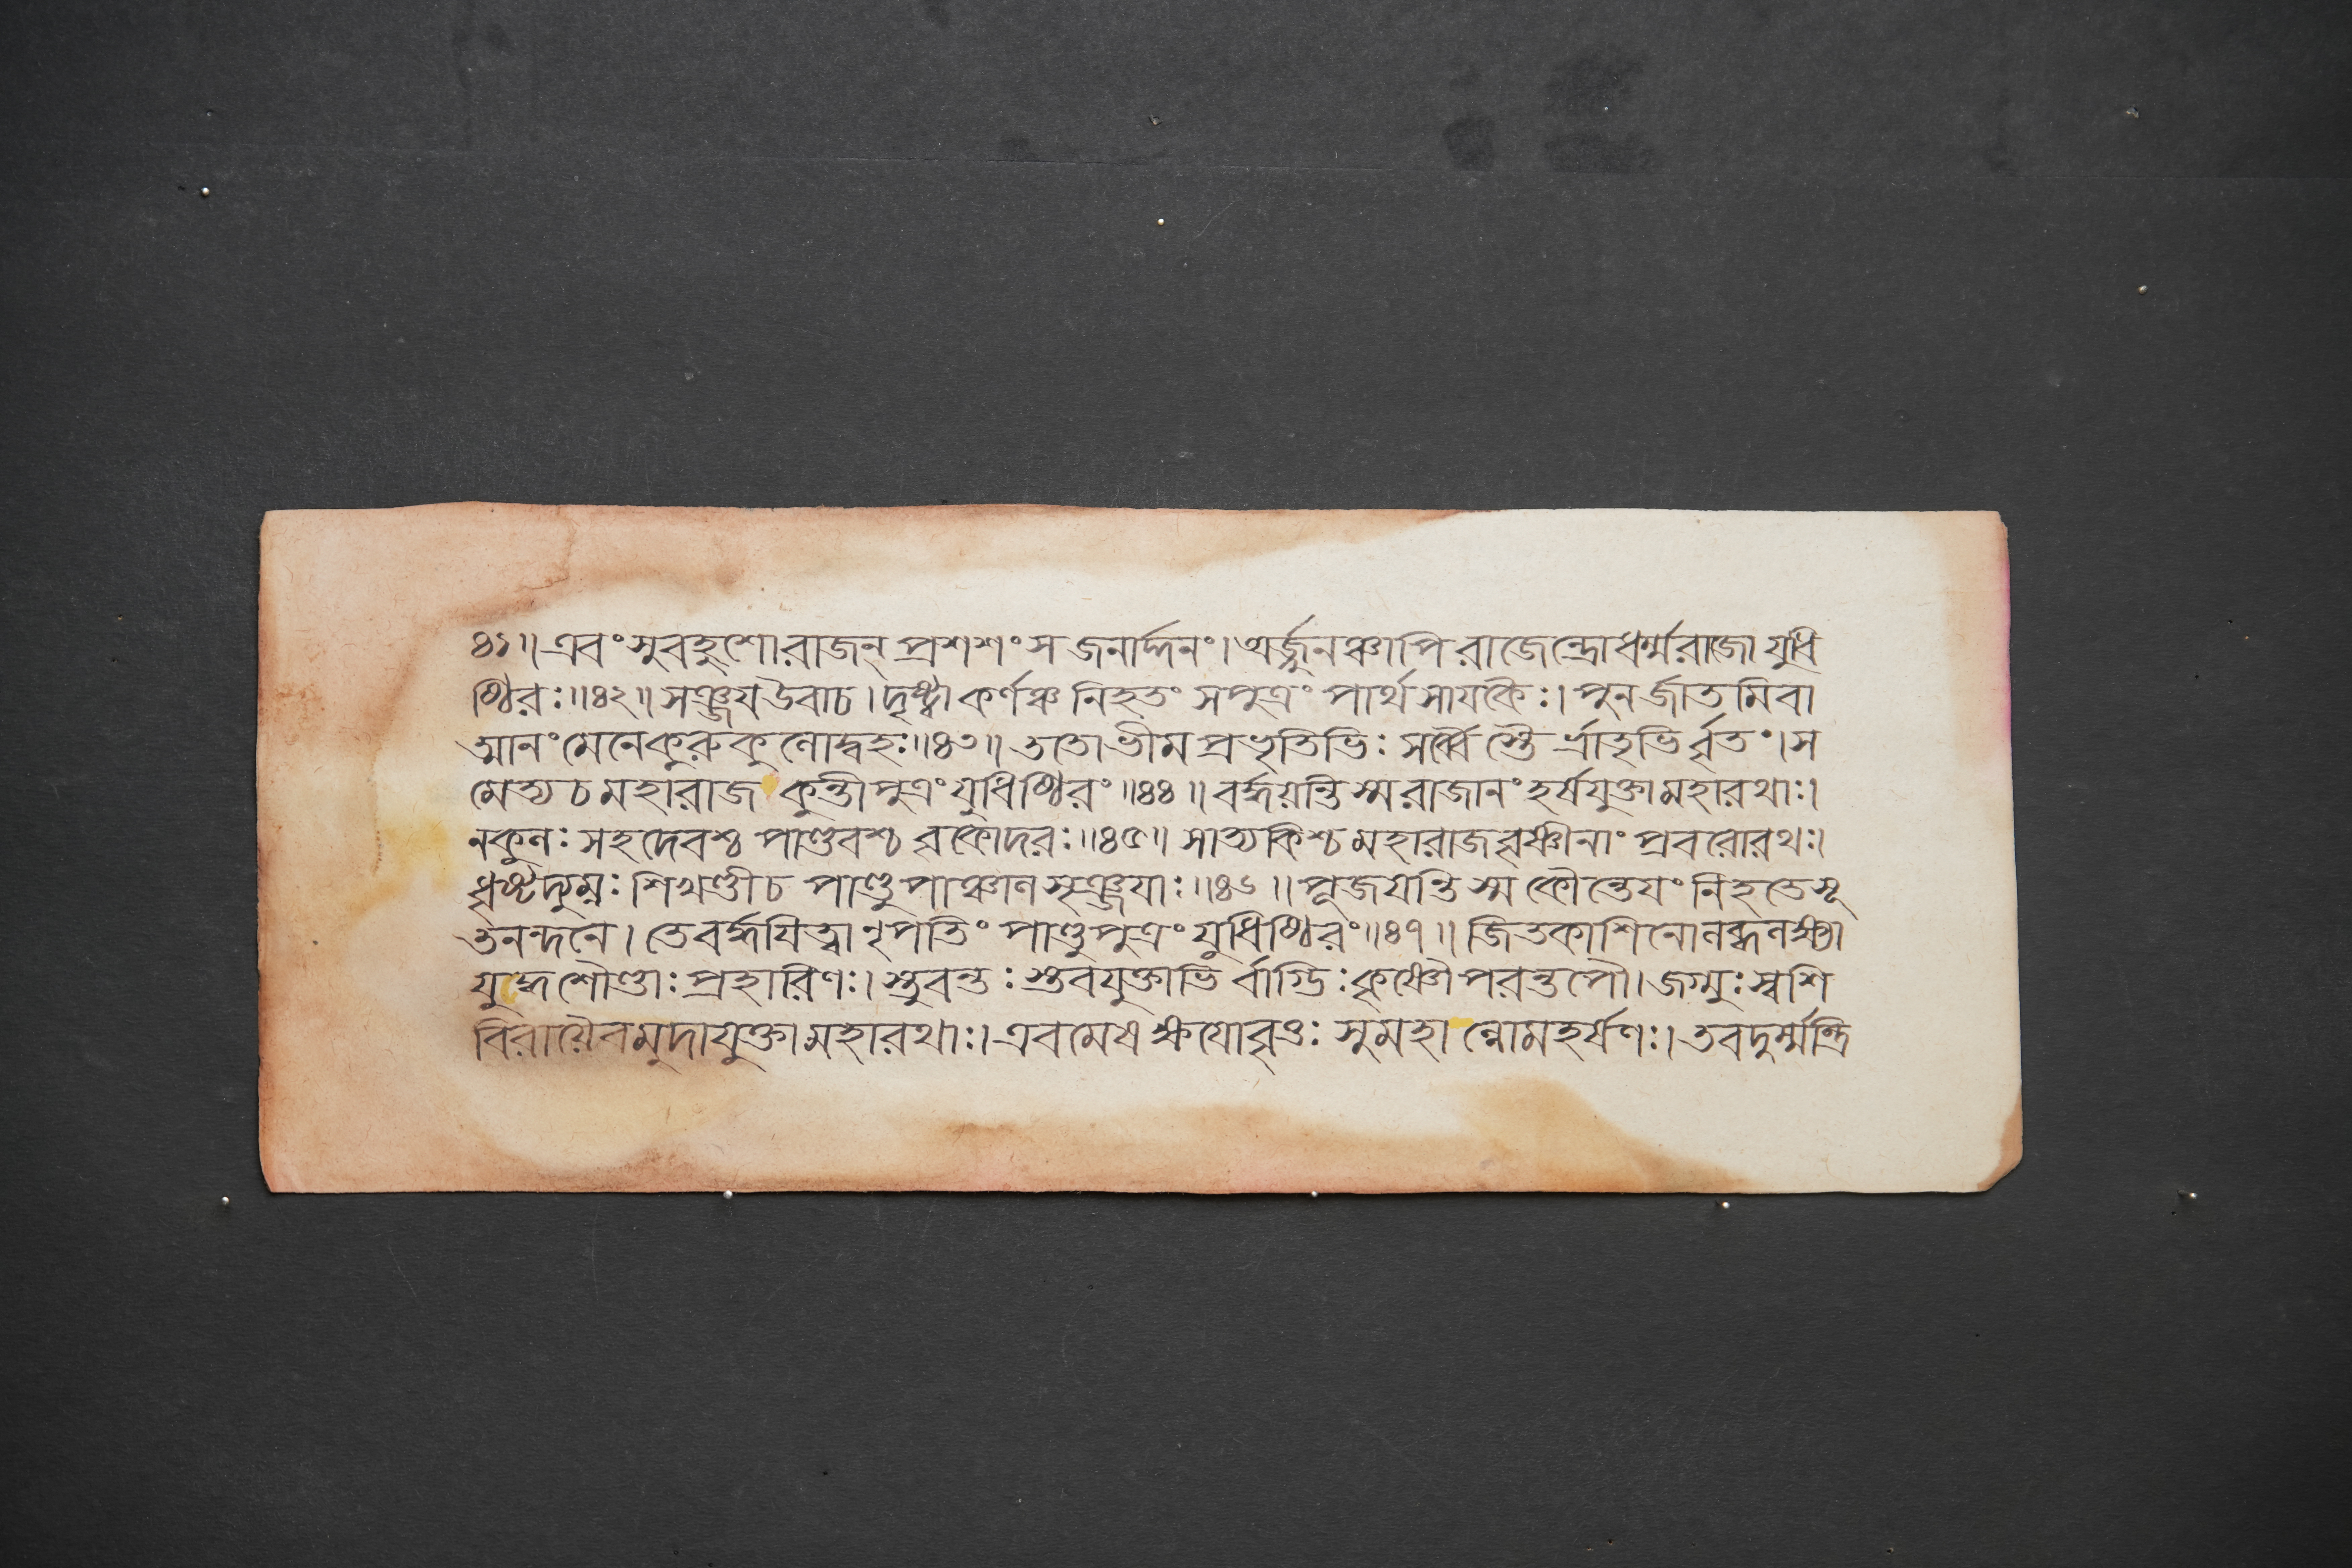 ৪১॥ এবং সুবহুশো রাজন্ প্রশশংস জনার্দ্দনং। অর্জ্জুনঞ্চাপি রাজেন্দ্রো ধর্ম্মরাজো যুধি
ষ্ঠিরঃ॥৪২॥ সঞ্জয উবাচ। দৃষ্ট্বা কর্ণঞ্চ নিহতং সপুত্রং পার্থসাযকৈঃ। পুনর্জাতমিবা
ত্মানং মেনে কুরুকুলোদ্বহঃ॥৪৩॥ ততো ভীমপ্রভৃতিভিঃ সর্ব্বৈস্তৈর্ভ্রাতৃভির্বৃতং। স
মেত্য চ মহারাজ কুন্তীপুত্রং যুধিষ্ঠিরং॥৪৪॥ বর্দ্ধয়ন্তি স্ম রাজানং হর্ষযুক্তা মহারথাঃ।
নকুলঃ সহদেবশ্চ পাণ্ডবশ্চ বৃকোদরঃ॥৪৫॥ সাত্যকিশ্চ মহারাজ বৃষ্ণীনাং প্রবরো রথঃ।
ধৃষ্টদ্যুম্নঃ শিখণ্ডী চ পাণ্ডুপাঞ্চালসৃঞ্জযাঃ॥৪৬॥ পূজযন্তি স্ম কৌন্তেযং নিহতে সূ
তনন্দনে। তে বর্দ্ধযিত্বা নৃপতিং পাণ্ডুপুত্রং যুধিষ্ঠিরং॥৪৭॥ জিতকাশিনো লব্ধলক্ষ্যা
যুদ্ধশৌণ্ডাঃ প্রহারিণঃ। স্তুবন্তঃ স্তবযুক্তাভির্বাগ্ভিঃ কৃষ্ণৌ পরন্তপৌ। জগ্মুঃ স্বশি
বিরাযৈব মুদাযুক্তা মহারথাঃ। এবমেষ ক্ষযো বৃত্তঃ সুমহাল্লোমহর্ষণঃ। তব দুর্ম্মন্ত্রি